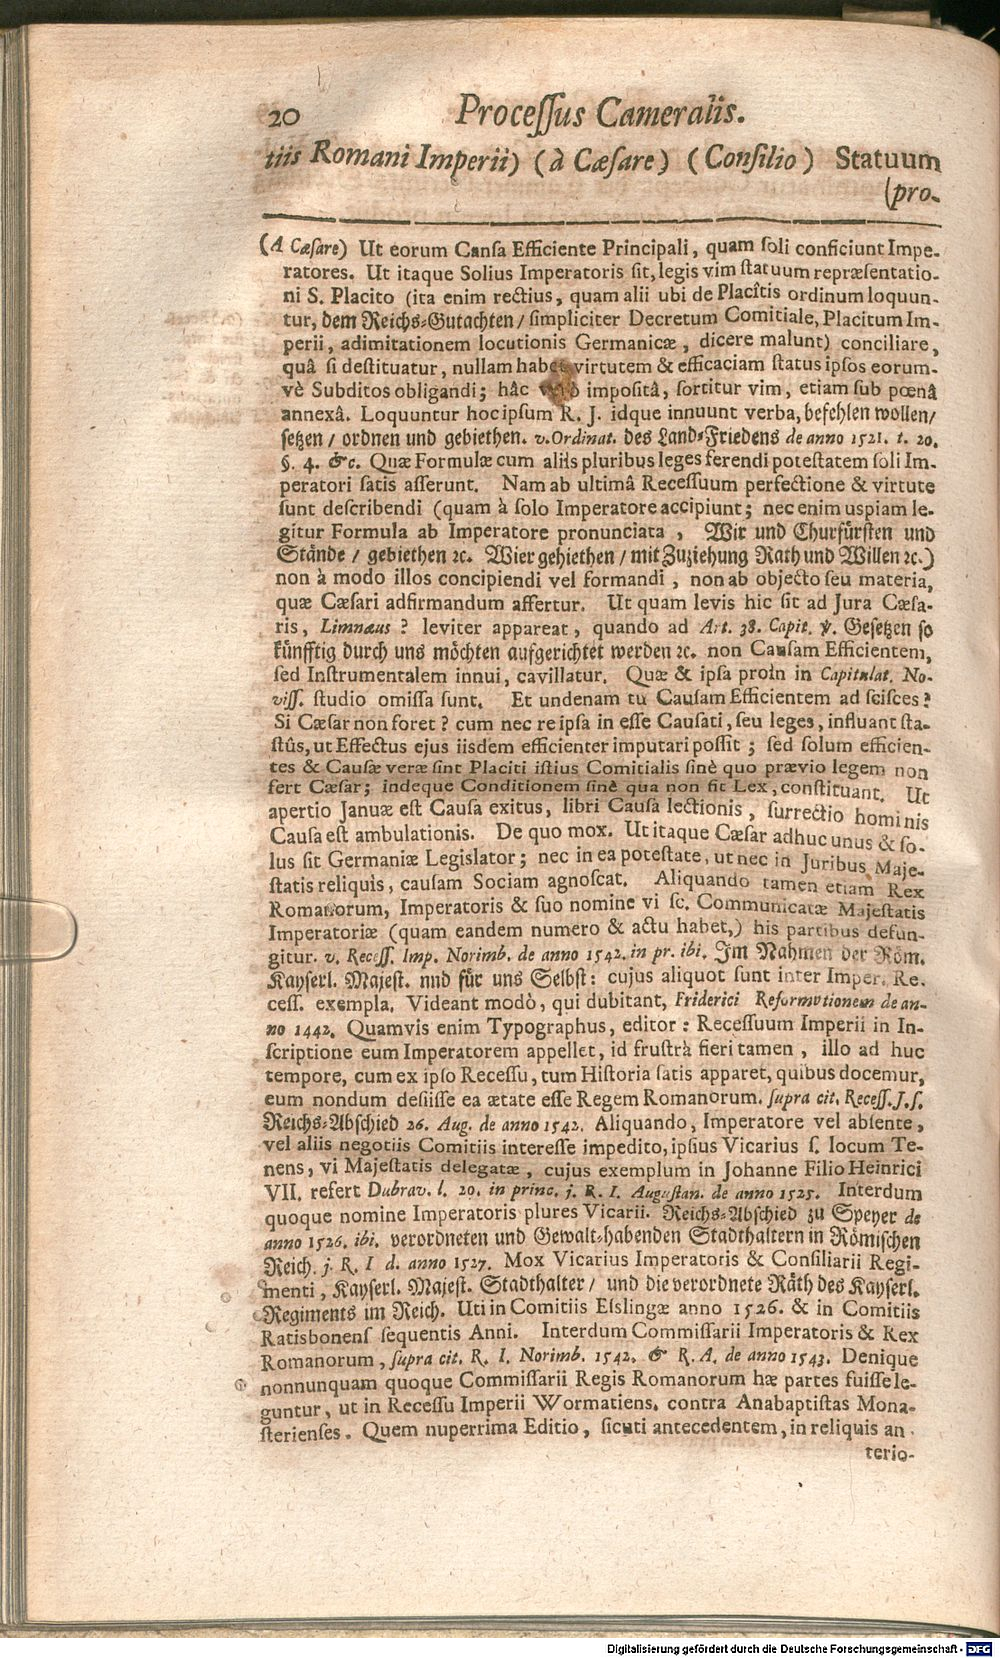 20 Processus Cameralis.
tiis Romani Imperii) (à Cæsare) (Consilio) Statuum
(pro-
(A Cæsare) Ut eorum Cansa Efficiente Principali, quam soli conficiunt Impe-
ratores. Ut itaque Solius Imperatoris sit, legis vim statuum repræsentatio-
ni S. Placito (ita enim rectius, quam alii ubi de Placitis ordinum loquun-
tur, dem Reichs-Gutachten/ simpliciter Decretum Comitiale, Placitum Im-
perii, adimitationem locutionis Germanicæ, dicere malunt) conciliare,
quâ si destituatur, nullam habet virtutem & efficaciam status ipsos eorum-
vè Subditos obligandi; hâc verò impositâ, sortitur vim, etiam sub pœnâ
annexâ. Loquuntur hoc ipsum R. J. idque innuunt verba, befehlen wollen/
setzen / ordnen und gebiethen. v. Ordinat. des Land-Friedens de anno 1521. t. 20.
§. 4. &c. Quæ Formulæ cum aliis pluribus leges ferendi potestatem soli Im-
peratori satis asserunt. Nam ab ultimâ Recessuum perfectione & virtute
sunt describendi (quam à solo Imperatore accipiunt; nec enim uspiam le-
gitur Formula ab Imperatore pronunciata, Wir und Churfürsten und
Stände / gebiethen ꝛc. Wier gehiethen / mit Zuziehung Rath und Willen ꝛc.)
non à modo illos concipiendi vel formandi, non ab objecto seu materia,
quæ Cæsari adfirmandum affertur. Ut quam levis hic sit ad Jura Cæsa-
ris, Limnæus? leviter appareat, quando ad Art. 38. Capit. V. Gesetzen so
künfftig durch uns möchten aufgerichtet werden ꝛc. non Causam Efficientem,
sed Instrumentalem innui, cavillatur. Quæ & ipsa proin in Capitulat. No-
viss. studio omissa sunt. Et undenam tu Causam Efficientem ad scisces?
Si Cæsar non foret? cum nec re ipsa in esse Causati, seu leges, influant sta-
stûs, ut Effectus ejus iisdem efficienter imputari possit; sed solum efficien-
tes & Causæ veræ sint Placiti istius Comitialis sinè quo prævio legem non
fert Cæsar; indeque Conditionem sinè qua non fit Lex, constituant. Ut
apertio Januæ est Causa exitus, libri Causa lectionis, surrectio hominis
Causa est ambulationis. De quo mox. Ut itaque Cæsar adhuc unus & so-
lus sit Germaniæ Legislator; nec in ea potestate, ut nec in Juribus Maje-
statis reliquis, causam Sociam agnoscat. Aliquando tamen etiam Rex
Romanorum, Imperatoris & suo nomine vi sc. Communicatæ Majestatis
Imperatoriæ (quam eandem numero & actu habet,) his partibus defun-
gitur. v. Recess. Imp. Norimb. de anno 1542. in pr. ibi. Im Nahmen der Röm.
Kayserl. Majest. nnd für uns Selbst: cujus aliquot sunt inter Imper. Re-
cess. exempla. Videant modò, qui dubitant, Friderici Reformvtionem de an-
no 1442. Quamvis enim Typographus, editor: Recessuum Imperii in In-
scriptione eum Imperatorem appellet, id frustrà fieri tamen, illo ad huc
tempore, cum ex ipso Recessu, tum Historia satis apparet, quibus docemur,
eum nondum desiisse ea ætate esse Regem Romanorum. supra cit. Recess. J. s.
Reichs-Abschied 26. Aug. de anno 1542. Aliquando, Imperatore vel absente,
vel aliis negotiis Comitiis interesse impedito, ipsius Vicarius s. locum Te-
nens, vi Majestatis delegatæ, cujus exemplum in Johanne Filio Heinrici
VII. refert Dubrav. l. 20. in princ. j. R. I. Augustan. de anno 1525. Interdum
quoque nomine Imperatoris plures Vicarii. Reichs-Abschied zu Speyer de
anno 1526. ibi. verordneten und Gewalt-habenden Stadthaltern in Römischen
Reich. j. R. I d. anno 1527. Mox Vicarius Imperatoris & Consiliarii Regi-
menti, Kayserl. Majest. Stadthalter/ und die verordnete Räth des Kayserl.
Regiments im Reich. Uti in Comitiis Eslingæ anno 1526. & in Comitiis
Ratisbonens sequentis Anni. Interdum Commissarii Imperatoris & Rex
Romanorum, supra cit. R. I. Norimb. 1542. & R. A. de anno 1543. Denique
nonnunquam quoque Commissarii Regis Romanorum hæ partes fuisse le-
guntur, ut in Recessu Imperii Wormatiens. contra Anabaptistas Mona-
sterienses. Quem nuperrima Editio, sicuti antecedentem, in reliquis an-
terio-
Digitalisierung gefördert durch die Deutsche Forschungsgemeinschaft - DFG